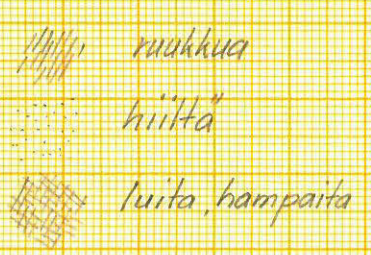 ruukkua
hiiltä
luita, hampaita